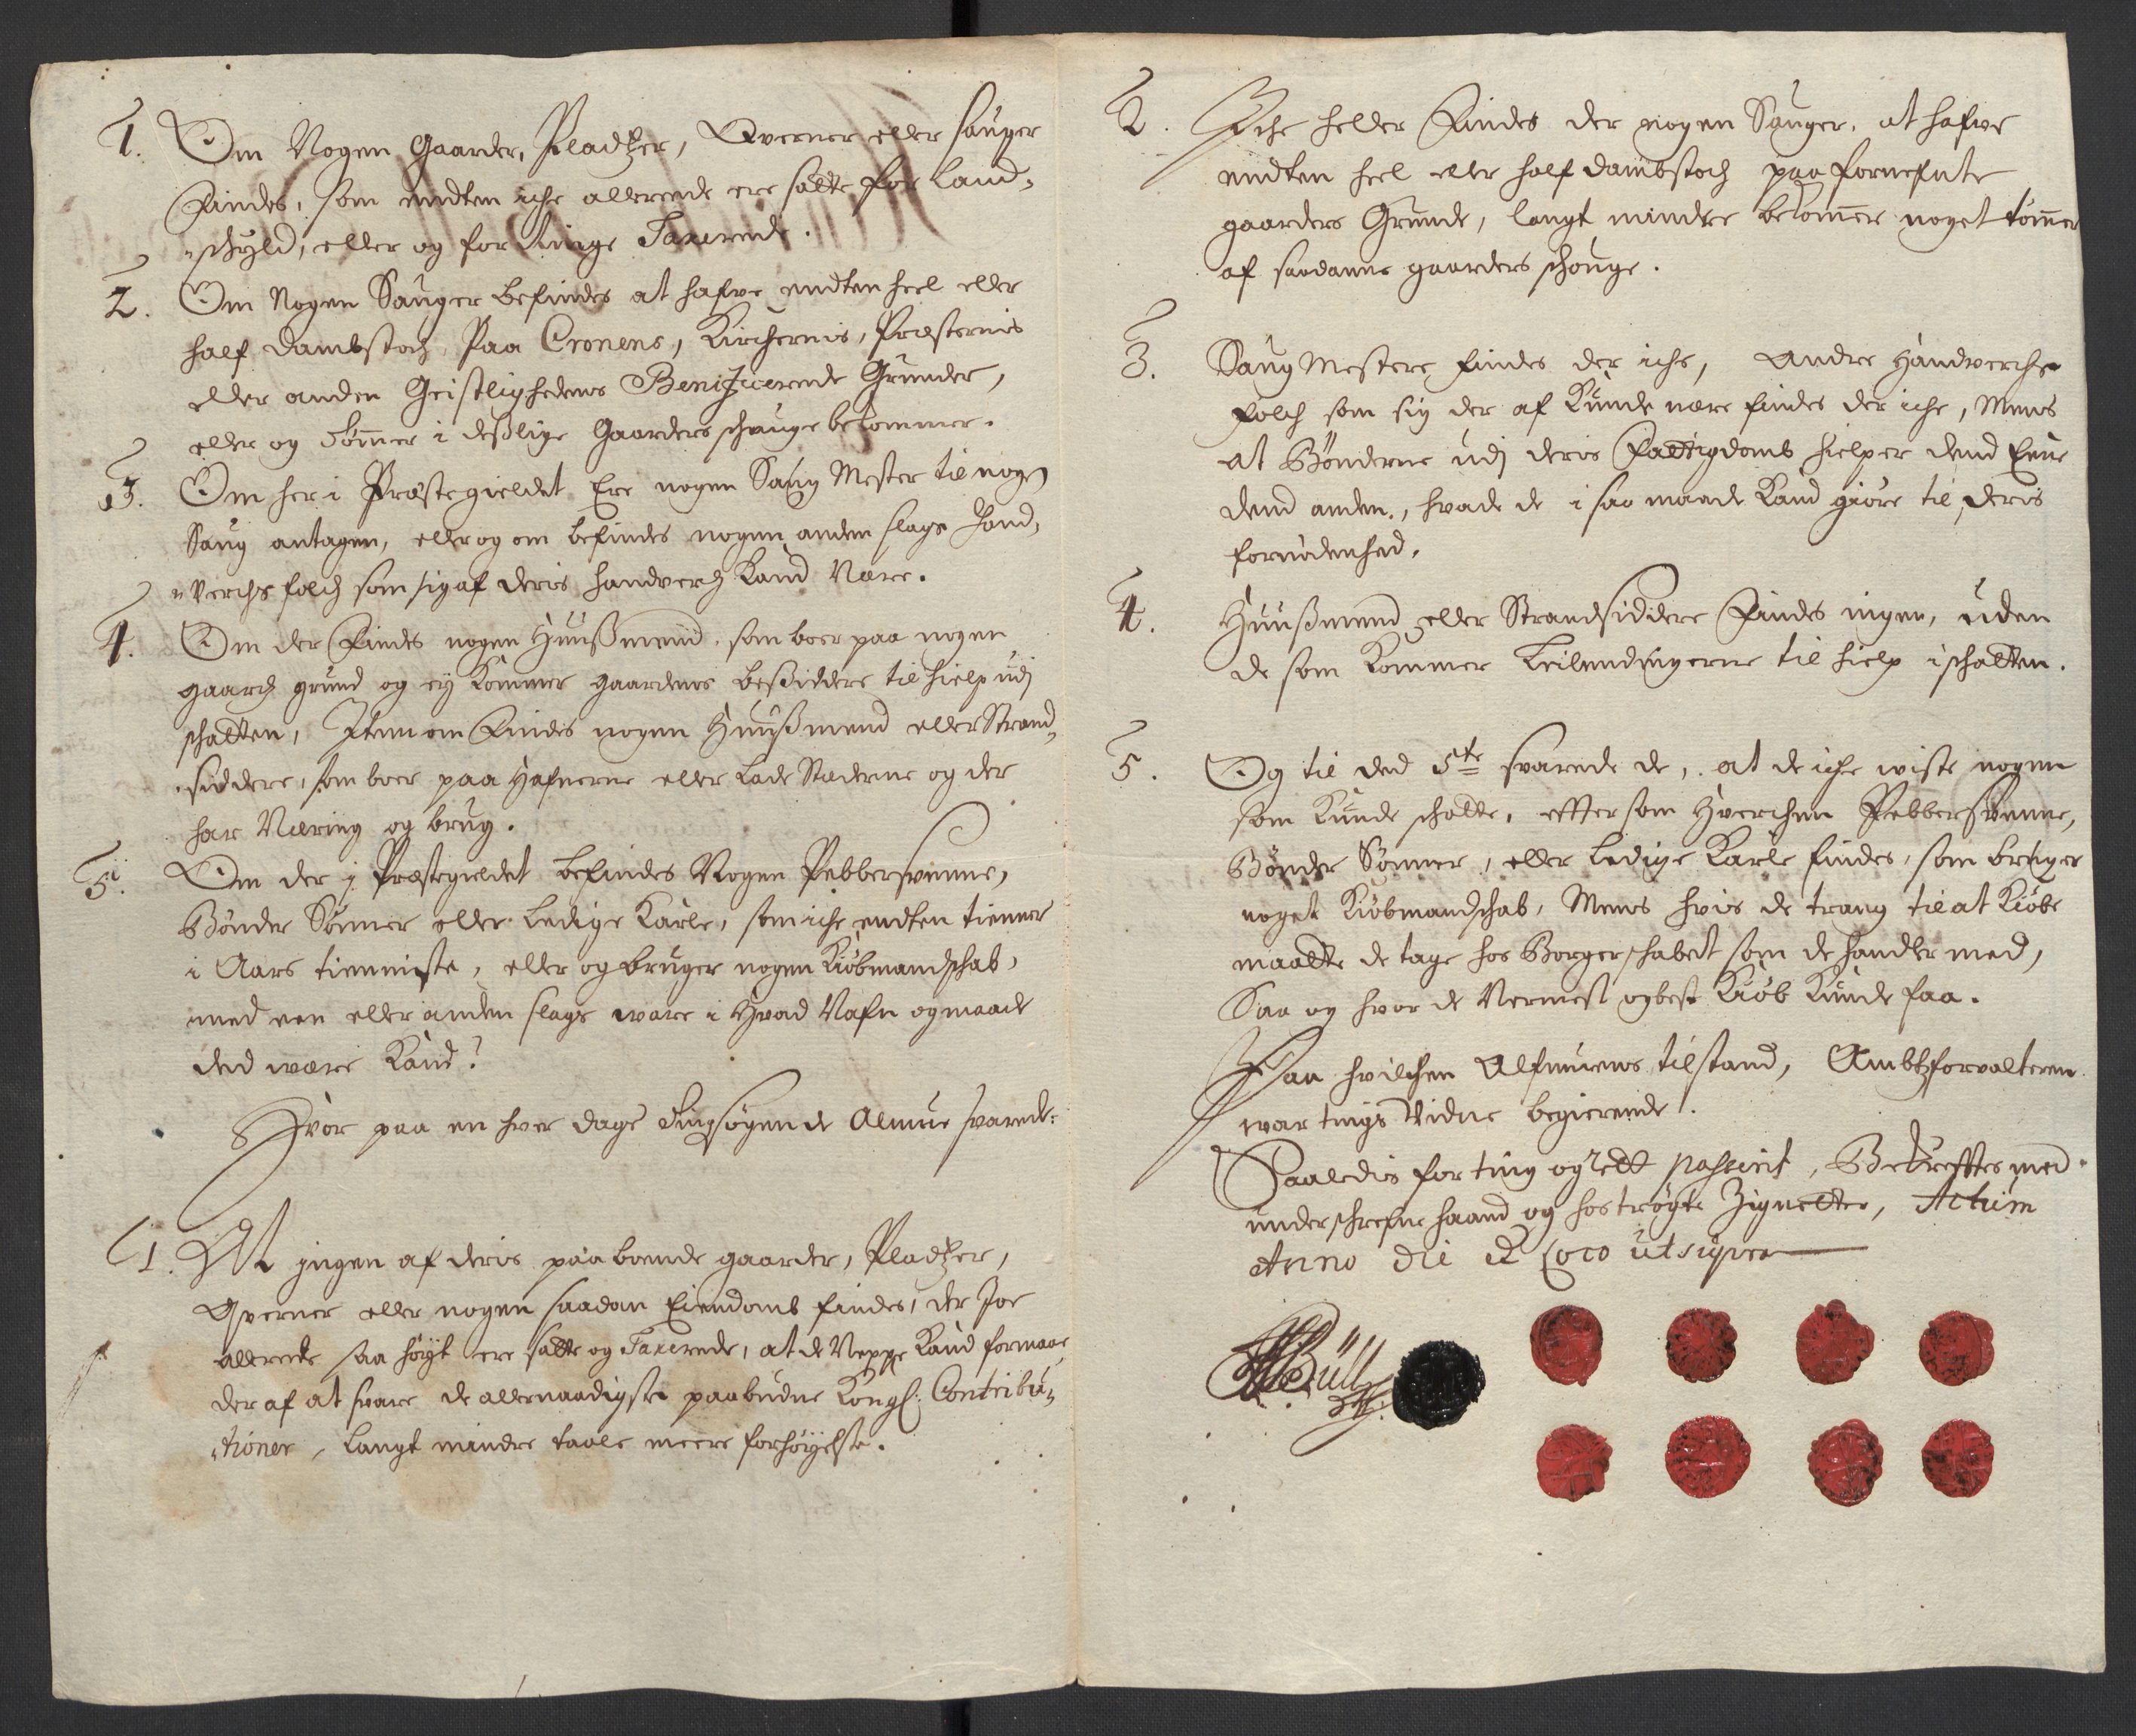 1. Om Nogen Gaarder, Pladtzer, Qverner eller sauger
Findes, som endten iche allerede ere satte for Land-
schyld, eller og for ringe Taxerede.
2. Om Nogen Sauger befindes at hafve endten heel eller
half dambstoch Paa Cronens, Kirchernis, Præsternis
eller anden Geistlighedens Benificerede Grunder,
eller og Tømmer i deslige Gaarders schouge bekommer.
3. Om her i Præstegieldet Ere nogen Saug Mester til nogen
Saug antagen, eller og om befindes nogen anden slags Hand-
verchs folch som sig af deris handverch Kand Nære.
4. Om der Findes nogen Huusmend, som boer paa nogen
gaards grund og ey kommer gaardenes besiddere til hielp udj
schatten, Item om Findis nogen Huusmend eller Strand-
siddere, som boer paa Hafnerne eller Lade Stæderne og der
har Næring og brug.
5. Om der j Præstegieldet befindes Nogen Pebbersvenne,
Bønder Sønner eller Ledige Karle, som iche endten tienner
i Aars tienniste, eller og bruger nogen Kiøbmandschab,
med een eller anden slags ware i Hvad Nafn og maade
ded være Kand?
Hvor paa en hver dags Tingsøgende Almue svarede:
1. At jngen af deris paaboende gaarder, Pladtzer,
Qverner eller nogen saadan Eiendomb findes, der Joe
allerede saa høyt ere satte og Taxerede, at de Neppe Kand formaae
der af at svare de allernaadigste paabudne Kongl: Contribu-
tioner, langt mindre taale meere forhøyelse.
2. Iche heller Findes der nogen Sauger, at hafve
endten heel eller half dambstoch paa fornefnte
gaarders Grunde, langt mindre bekommer noget tømmer
af saadanne gaarders schouge.
3. Saug Mestere findes der iche, Andre Handverchs
folch som sig der af Kunde nære findes der iche, Mens
at Bønderne udj deris Fattigdomb hielper dend Eene
dend anden, hvade de i saa maade Kand giøre til deris
fornødenhed.
4. Huusmend eller Strandsiddere Findes ingen, uden
de som kommer Leilendingerne til hielp i schatten.
5. Og til ded 5te svarede de, at de iche wiste nogen
som Kunde schatte, efftersom Hverchen Pebbersvenne,
Bønder Sønner, eller Ledige Karle findes, som bruger
noget Kiøbmandschab, Mens hvis de trang til at Kiøbe
maatte de tage hos Borgerschabet som de handler med,
Saa og hvor de Nermest og best Kiøb Kunde faa.
Paa hvilchen Almuens tilstand, Ambtzforvalteren
war tings Vidne begierende.
Saaledis for ting og rett passerit, Bekreffter med
underschrefne haand og hostrøgte Zignetter, Actum
Anno die et Loco ut supra
Bull